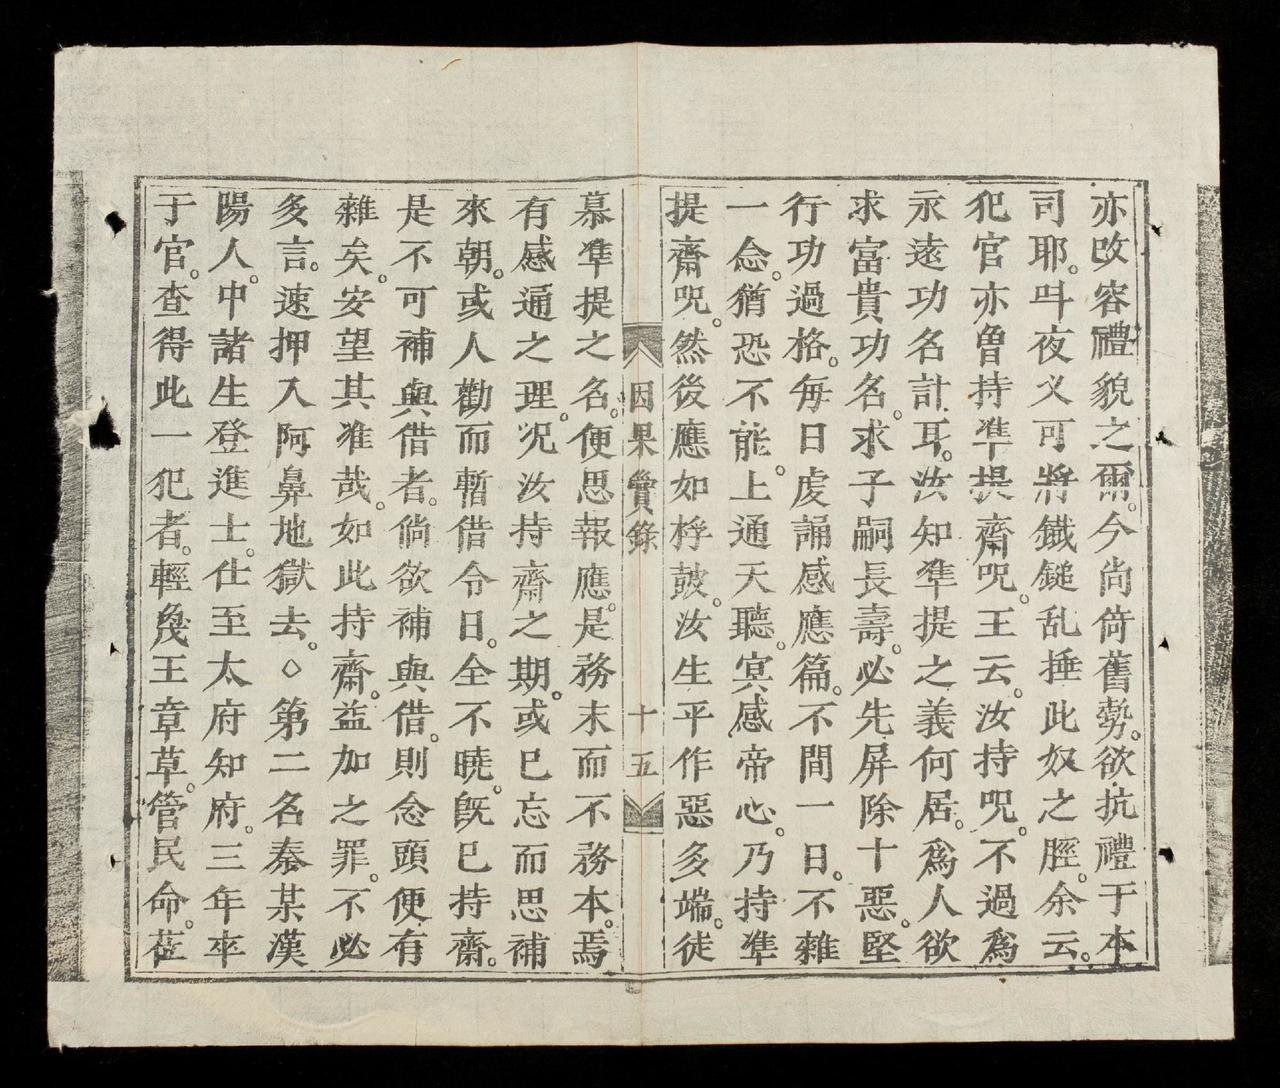 亦改容禮貌之爾。今尚倚舊勢。欲抗禮于本
司耶。呌夜义可將鐵鎚乱捶此奴之脛。余云。
犯官亦曾持凖提齋呪。王云。汝持呪。不過爲
永遠功名計耳。汝知凖提之義何居。爲人欲
求富貴功名。求子嗣長壽。必先屏除十惡。堅
行功過格。每日虔誦感應篇。不間一日。不雜
一念。猶恐不能。上通天聽。冥感帝心。乃持凖
提齋呪。然後應如桴鼓。汝生平作惡多端。徒
因果實錄 十五
慕凖提之名。便思報應。是務末而不務本。焉
有感通之理。况汝持齋之期。或已忘而思補
來朝。或人勸而暫借今日。全不曉。既已持齋。
是不可補與借者。倘欲補與借。則念頭便有
雜矣。安望其准哉。如此持齋。益加之罪。不必
多言。速押入阿鼻地獄去。◇第二名秦某漢
陽人。中諸生登進士。仕至太府知府。三年卒
于官。查得此一犯者。輕蔑王章。草管民命。莅